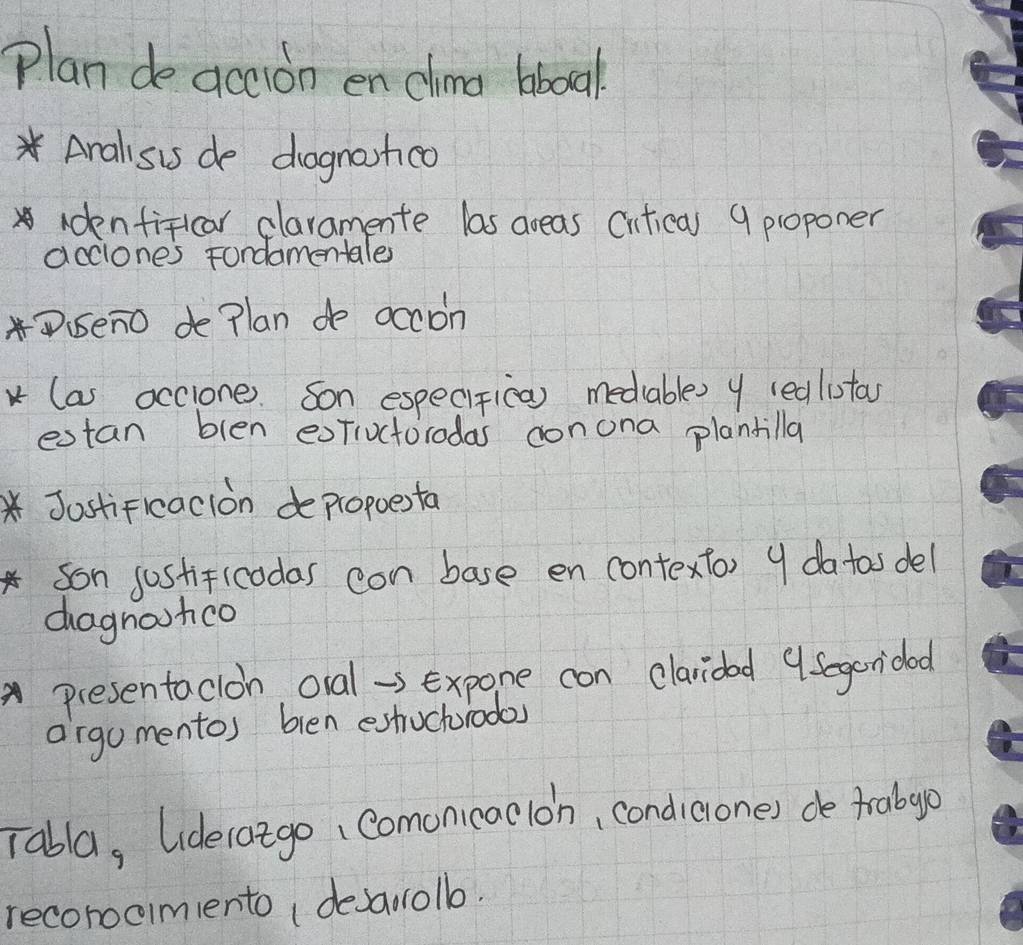 Plan de acción en clima laboral.
* Analisis de diagnostico
* identificar claramente las areas criticas y proponer
acciones fundamentales
* Diseño de Plan de acción
* las acciones son especificas mediables y realistas
estan bien estructuradas con una plantilla
* Justificación de propuesta
* Son justificadas con base en contextos y datos del
diagnostico
* presentación oral → Expone con claridad y seguridad
argumentos bien estructurados
Tabla, liderazgo, comunicación, condiciones de trabajo
reconocimiento, desarrollo.